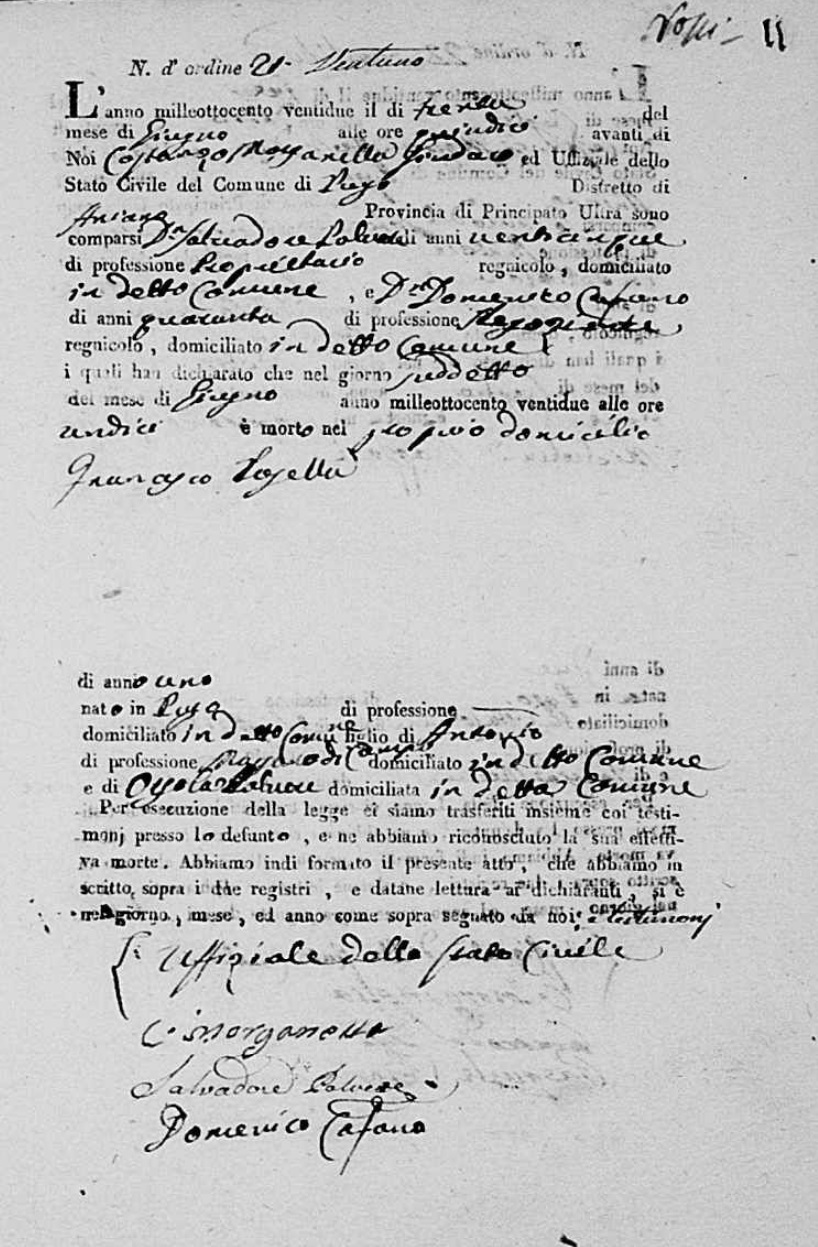 11
N. d' ordine 21. Ventuno
L'anno milleottocento ventidue il di trenta del
mese di Giugno alle ore quindici avanti di
Noi Costanzo Morganella Sindaco ed Uffiziale dello
Stato Civile del Comune di Distretto di
Ariano Provincia di Principato Ultra sono
comparsi Dn Salvadore di anni venticinque
di professione Proprietario regnicolo, domiciliato
in detto Comune, e Dn Domenico Cafano
di anni quaranta di professione
regnicolo, domiciliato in detto Comune
i quali han dichiarato che nel giorno suddetto
del mese di Giugno anno milleottocento ventidue alle ore
undici è morto nel proprio domicilio
Francesco
di anno uno
nato in di professione
domiciliato in detto Comune figlio di Antonio
di professione domiciliato in detto Comune
e di domiciliata in detto Comune
Per esecuzione della legge ci siamo trasferiti insieme coi testi-
monj presso lo defunto, e ne abbiamo riconosciuto la sua effetti-
va morte. Abbiamo indi formato il presente atto, che abbiamo in
scritto sopra i due registri, e datane lettura ai dichiaranti, si è
nel giorno, mese, ed anno come sopra segnato da noi, e testimonj
L' Uffiziale dello Stato Civile
C. Morganella
Salvadore
Domenico Cafano